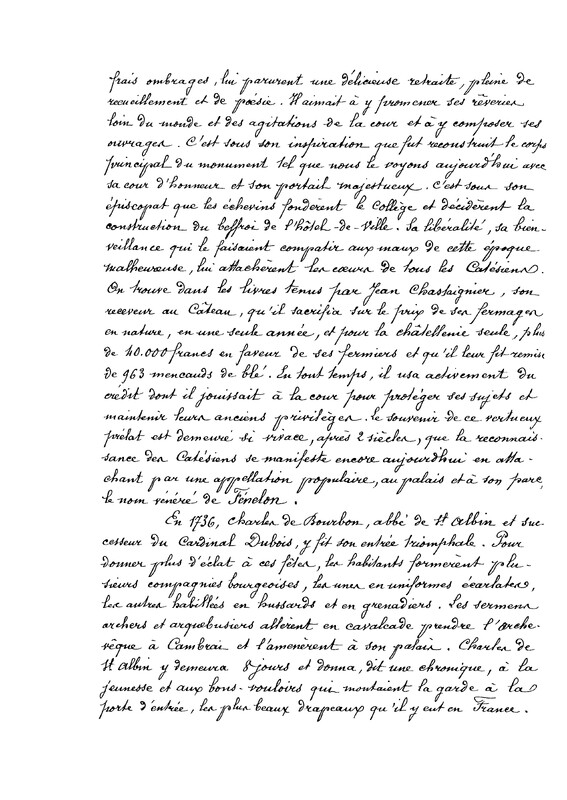 frais ombrages, lui parurent une délicieuse retraite, pleine de
recueillement et de poésie. Il aimait à y promener ses rêveries
loin du monde et des agitations de la cour et à y composer ses
ouvrages. C'est sous son inspiration que fut reconstruit le corps
principal du monument tel que nous le voyons aujourd'hui avec
sa cour d'honneur et son portail majestueux. C'est sous son
épiscopat que les échevins fondèrent le Collège et décidèrent la
construction du beffroi de l'hôtel-de-Ville. Sa libéralité, sa bien-
veillance qui le faisaient compatir aux maux de cette époque
malheureuse, lui attachèrent les cœurs de tous les Catésiens.
On trouve dans les livres tenus par Jean Chastaignier, son
receveur au Câteau, qu'il sacrifia sur le prix de ses fermages
en nature, en une seule année, et pour la châtellenie seule, plus
de 40.000 francs en faveur de ses fermiers et qu'il leur fit remise
de 963 mencauds de blé. En tout temps, il usa activement du
crédit dont il jouissait à la cour pour protéger ses sujets et
maintenir leurs anciens privilèges. le souvenir de ce vertueux
prélat est demeuré si vivace, après 2 siècles, que la reconnais-
sance des Catésiens se manifeste encore aujourd'hui en atta-
chant par une appellation populaire, au palais et à son parc,
le nom vénéré de Fénelon.
En 1736, Charles de Bourbon, abbé de St Albin et suc-
cesseur du Cardinal Dubois, y fit son entrée triomphale. Pour
donner plus d'éclat à ces fêtes, les habitants formèrent plu-
sieurs compagnies bourgeoises, les unes en uniformes écarlates,
les autres habillées en hussards et en grenadiers. Les sermens
archers et arquebusiers allèrent en cavalcade prendre l'Arche-
vêque à Cambrai et l'amenèrent à son palais. Charles de
St Albin y demeura 8 jours et donna, dit une chronique, à la
jeunesse et aux bons-vouloirs qui montaient la garde à la
porte d'entrée, les plus beaux drapeaux qu'il y eut en France.